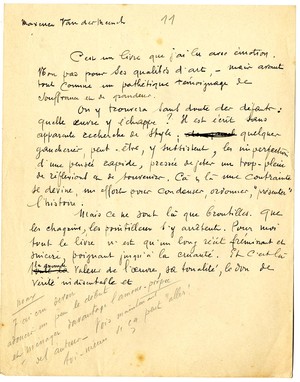 Maxence Van der Meersch
11
C'est un livre que j'ai lu avec émotion.
Non pas pour ses qualités d'art, – mais avant
tout comme un pathétique témoignage de
souffrance et de grandeur.
On y trouvera sans doute des défauts :
quelle œuvre y échappe ? Il est écrit sans
apparente recherche de style ; quelques
gaucheries peut-être, y subsistent, les imperfections
d'une pensée rapide, pressée de jeter un trop-plein
de réflexions et de souvenirs. Çà et là une contrainte
se devine, un effort pour condenser, ordonner, "présenter"
l'histoire.
Mais ce ne sont là que broutilles. Que
les chagrins, les pointilleux s'y arrêtent. Pour moi
tout le livre n'est qu'un long récit frémissant et
sincère, poignant jusqu'à la cruauté. Et c'est là
valeur de l'œuvre, sa tonalité, le don de
vérité indiscutable et
J'ai cru devoir
un peu le début
et ménager davantage l'amour-propre
auteur. Vois maintenant
si ça peut "aller"